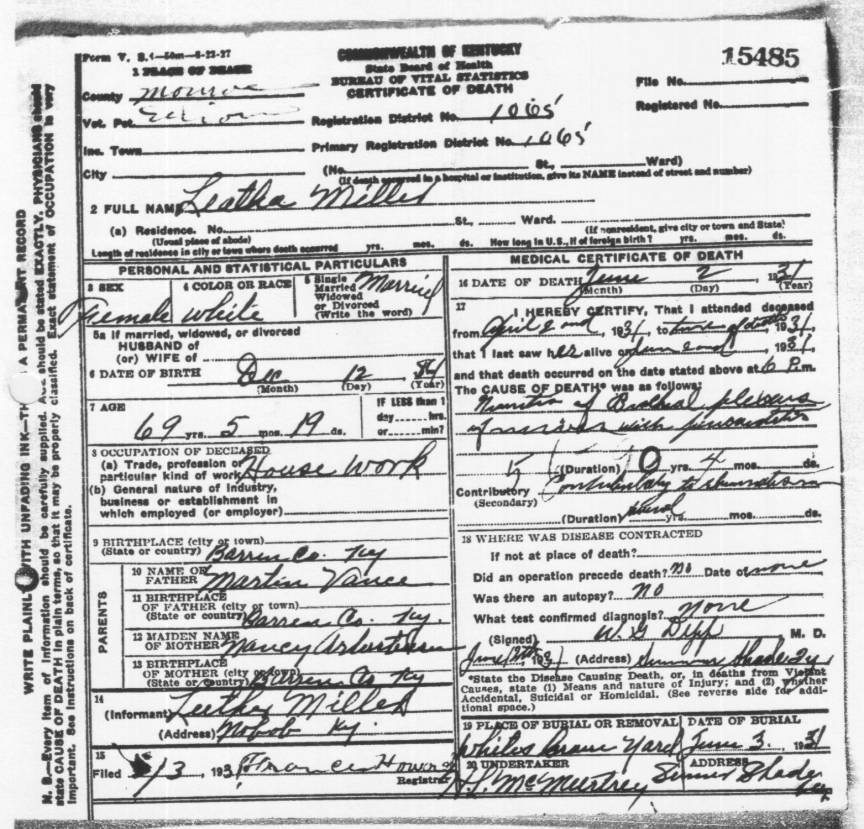 15485
Form V. S. 1—50m—8-22-27
COMMONWEALTH OF KENTUCKY
State Board of Health
BUREAU OF VITAL STATISTICS
CERTIFICATE OF DEATH
1 PLACE OF DEATH
County Monroe
File No.
Registered No.
Vot. Pct.
Registration District No. 1065
Inc. Town
Primary Registration District No. 1065
City
(No. St., Ward)
(If death occurred in a hospital or institution, give its NAME instead of street and number)
2 FULL NAME Leatha Miller
(a) Residence. No. St., Ward.
(Usual place of abode) (If nonresident, give city or town and State)
Length of residence in city or town where death occurred yrs. mos. ds. How long in U.S., if of foreign birth? yrs. mos. ds.
PERSONAL AND STATISTICAL PARTICULARS
3 SEX
Female
4 COLOR OR RACE
white
5 Single
Married
Widowed
or Divorced
(Write the word)
Married
5a If married, widowed, or divorced
HUSBAND of
(or) WIFE of
6 DATE OF BIRTH Dec 12
(Month) (Day) (Year)
7 AGE
69 yrs. 5 mos. 19 ds.
IF LESS than 1
day hrs.
or min?
8 OCCUPATION OF DECEASED
(a) Trade, profession or
particular kind of work House Work
(b) General nature of industry,
business or establishment in
which employed (or employer)
9 BIRTHPLACE (city or town)
(State or country) Barren Co. Ky
PARENTS
10 NAME OF
FATHER Martin Vance
11 BIRTHPLACE
OF FATHER (city or town)
(State or country) Barren Co. Ky.
12 MAIDEN NAME
OF MOTHER Nancy
13 BIRTHPLACE
OF MOTHER (city or town)
(State or country) Barren Co Ky
14
(Informant) Luther Miller
(Address) Nobob Ky.
15
Filed /3, 1931 Frances Howard
Registrar
MEDICAL CERTIFICATE OF DEATH
16 DATE OF DEATH June 2, 1931
(Month) (Day) (Year)
17
I HEREBY CERTIFY, That I attended deceased
from April 2nd, 1931, to time of death, 1931,
that I last saw her alive on June 2nd, 1931,
and that death occurred on the date stated above at 6 P.m.
The CAUSE OF DEATH* was as follows:
of Brachial plexus
of with
(Duration) 0 yrs. 4 mos. ds.
Contributory
(Secondary)
Contributory to
(Duration) yrs. mos. ds.
18 WHERE WAS DISEASE CONTRACTED
If not at place of death?
Did an operation precede death? No Date of none
Was there an autopsy? No
What test confirmed diagnosis? None
(Signed) W. G Depp M. D.
June 13th, 1931 (Address) Summer Shade Ky
*State the Disease Causing Death, or, in deaths from Violent
Causes, state (1) Means and nature of Injury; and (2) whether
Accidental, Suicidal or Homicidal. (See reverse side for addi-
tional space.)
19 PLACE OF BURIAL OR REMOVAL
Whites Grave Yard
DATE OF BURIAL
June 3, 1931
20 UNDERTAKER
H. L. McMurtrey
ADDRESS
Summer Shade
Ky
N. B.—Every item of information should be carefully supplied. AGE should be stated EXACTLY. PHYSICIANS should
state CAUSE OF DEATH in plain terms, so that it may be properly classified. Exact statement of OCCUPATION is very
important. See instructions on back of certificate.
WRITE PLAINLY WITH UNFADING INK—THIS IS A PERMANENT RECORD